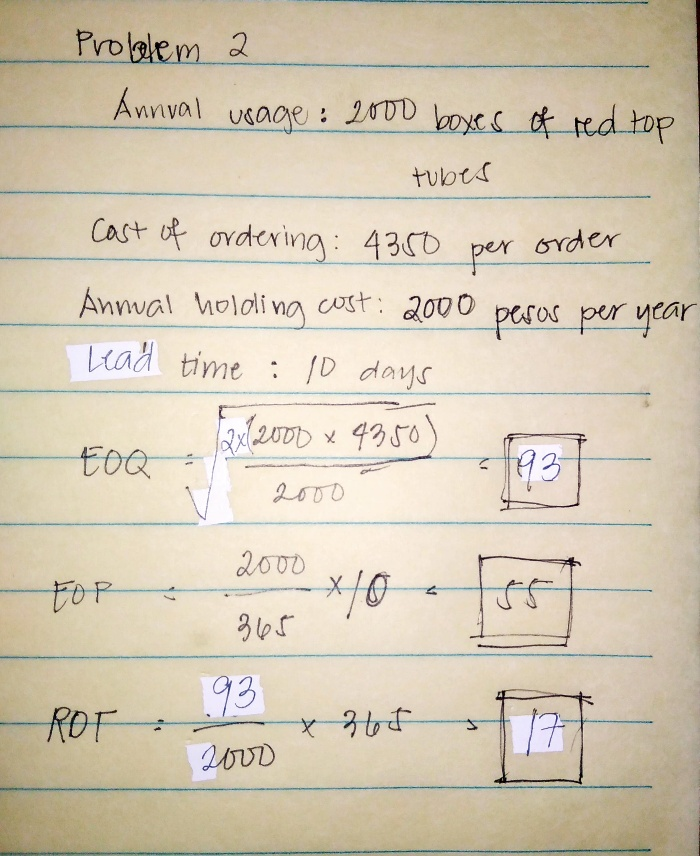 Problem 2
Annual usage: 2000 boxes of red top
tubes
Cost of ordering: 4350 per order
Annual holding cost: 2000 pesos per year
Lead time: 10 days
EOQ = √(2x(2000 x 4350) / 2000) = 93
EOP = 2000 / 365 x 10 = 55
ROT = 93 / 2000 x 365 = 17